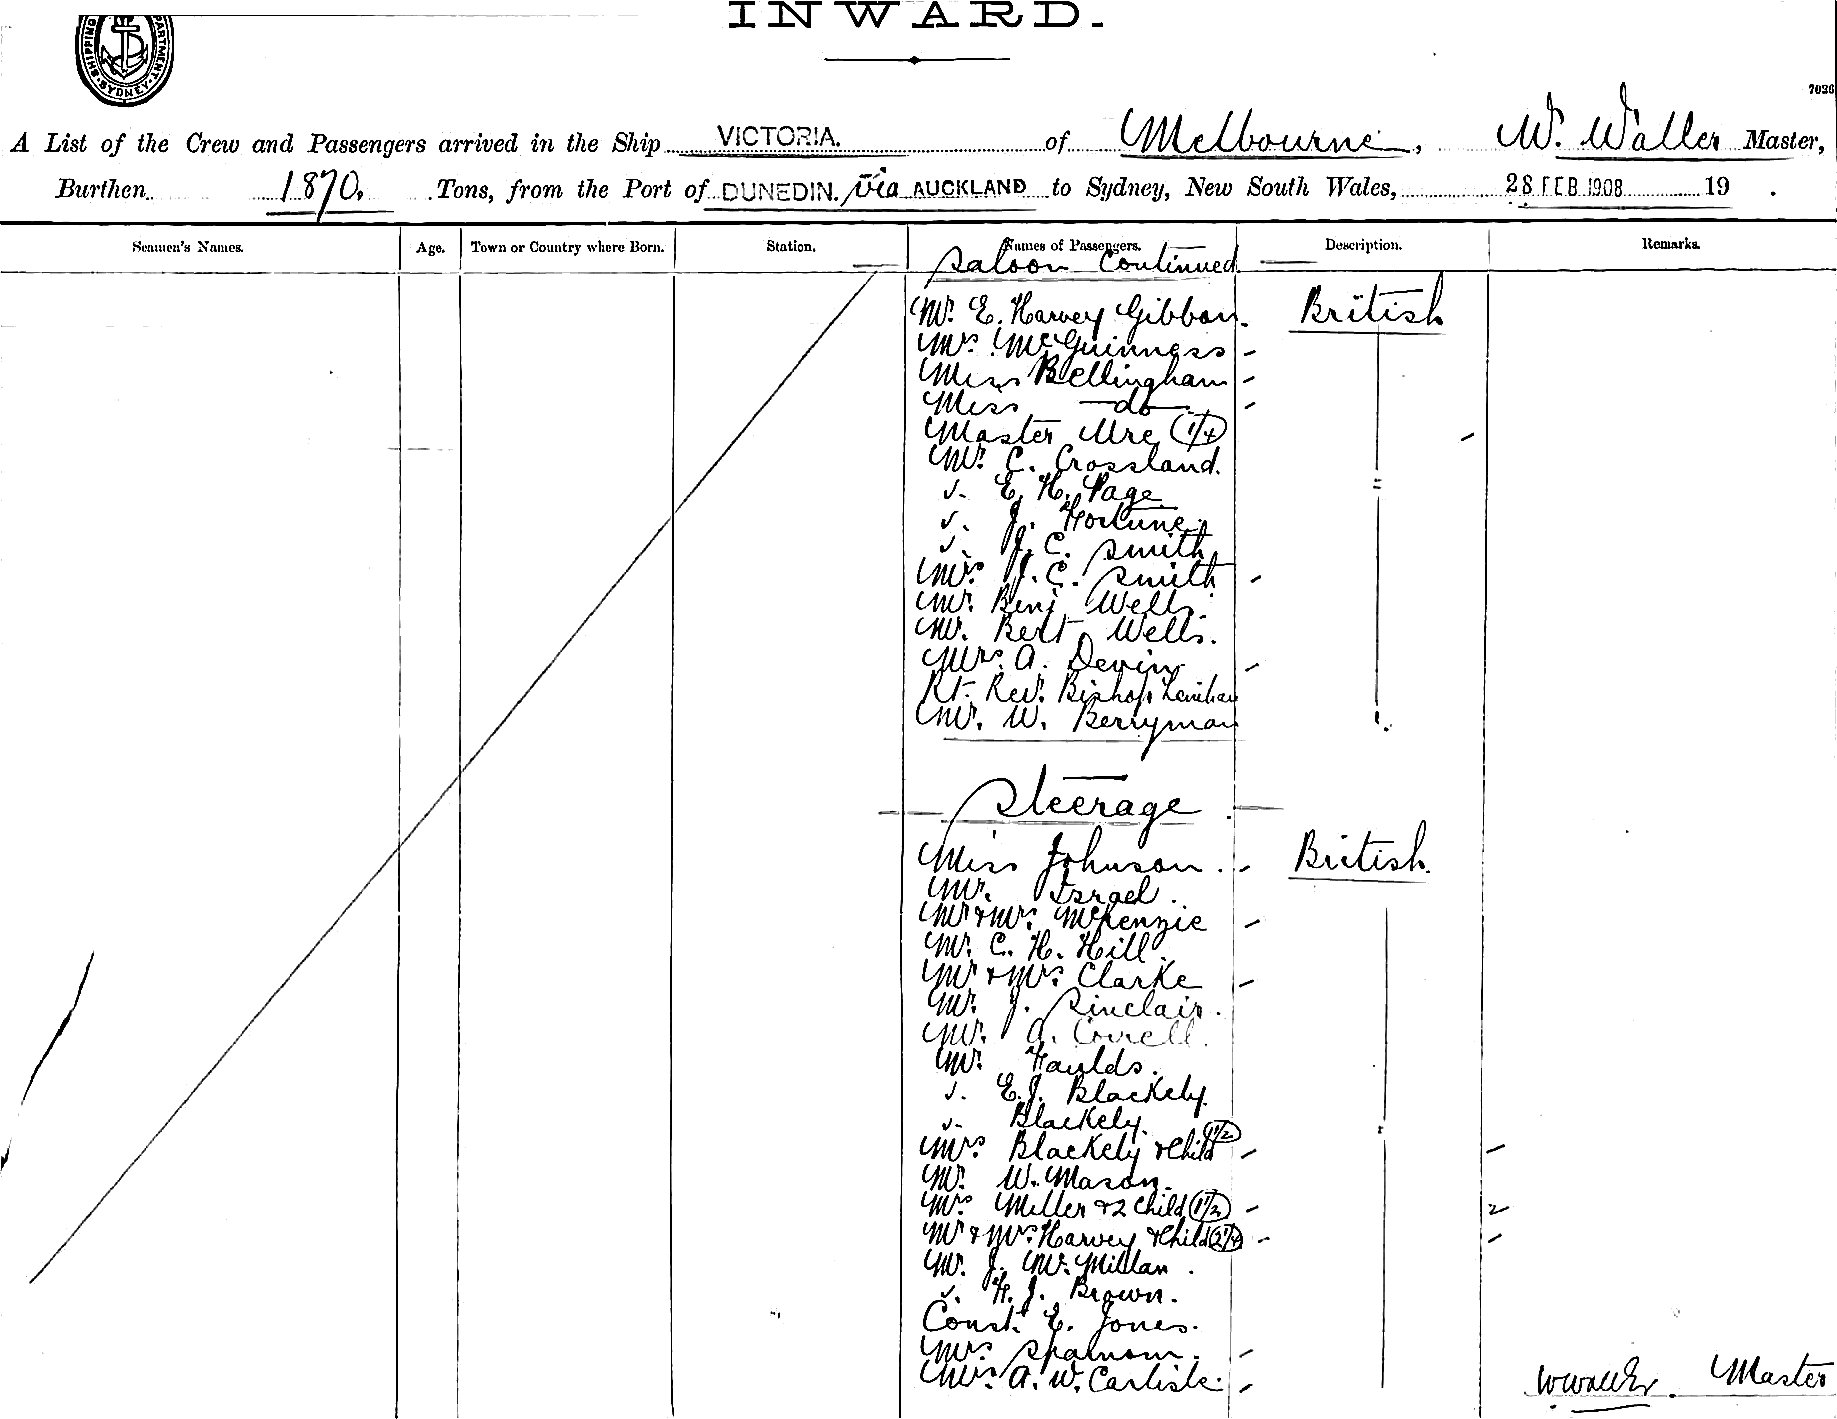 INWARD.
SHIPPING DEPARTMENT. SYDNEY
7026
A List of the Crew and Passengers arrived in the Ship VICTORIA. of Melbourne, W. Waller Master,
Burthen 1870. Tons, from the Port of DUNEDIN. via AUCKLAND to Sydney, New South Wales, 28 FEB 1908 19 .
Seamen's Names. Age. Town or Country where Born. Station. Names of Passengers. Description. Remarks.
Saloon Continued
Mr. E. Harvey Gibbon. British
Mrs. McGuinness -
Miss Bellingham -
Miss - do - -
Master Ure (1/4) -
Mr. C. Crossland.
". E. H. Page "
". J. Fortune.
". J. C. Smith
Mrs. J. C. Smith -
Mr. Benj Wells.
Mr. Bert Wells.
Mrs. A. Devin -
Rt. Rev. Bishop Lenihan
Mr. W. Berryman
Steerage
Miss Johnson. - British.
Mr. Israel.
Mr & Mrs. McKenzie -
Mr. C. H. Hill.
Mr & Mrs. Clarke -
Mr. J. Sinclair.
Mr. A. Correll.
Mr. Faulds.
". E. J. Blackely.
". Blackely.
Mrs Blackely & Child (1 1/2) - -
Mr. W. Mason.
Mrs Miller & 2 Child (1 1/2) - 2 -
Mr & Mrs. Harvey & Child (2 1/4) - -
Mr. J. McMillan.
". F. J. Brown.
Const. E. Jones.
Mrs. -
Mrs. A. W. Carlisle. -
W Waller. Master